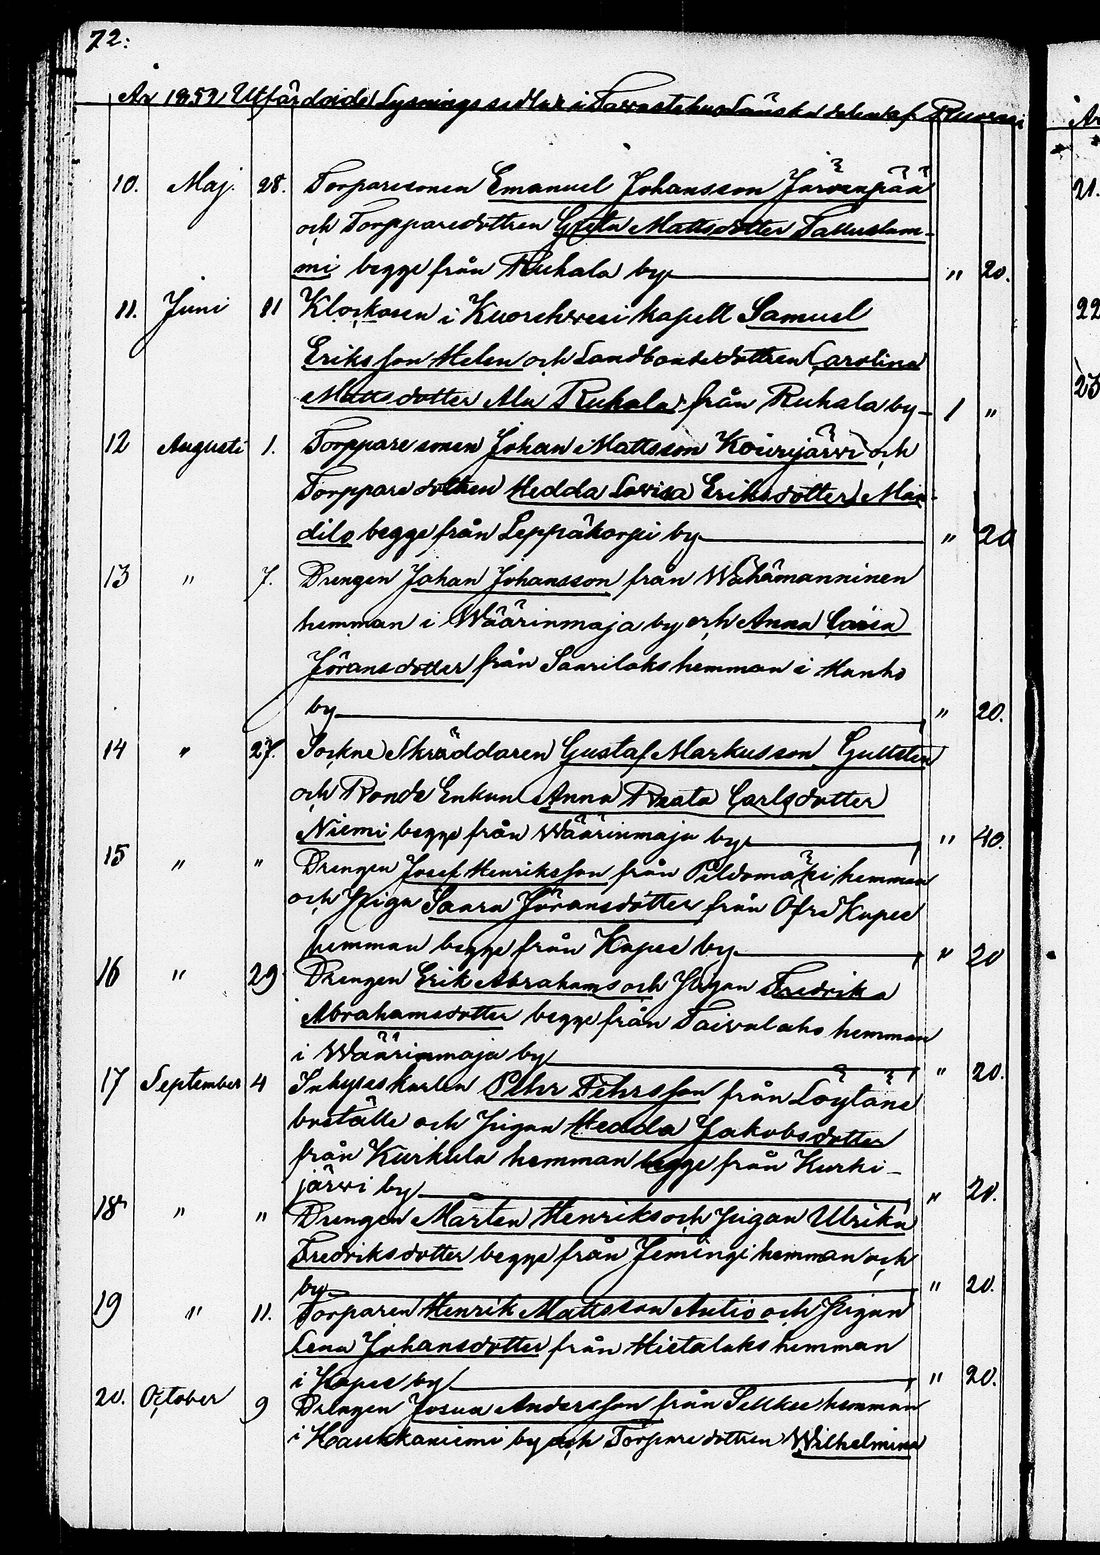 72.
År 1859 Utfärdade Lysningssedlar i Tawastehus Länska delen af Ruovesi
10. Maj. 28. Torparesonen Emanuel Johansson Järvenpää
och Torpparedottren Greta Mattsdotter
mi begge från Ruhala by " 20.
11. Juni 11 Klockaren i Kuorehvesi kapell Samuel
Eriksson Helen och Landbondedottren Carolina
Mattsdotter Ala Ruhala från Ruhala by 1 "
12 Augusti 1. Torpparesonen Johan Mattsson Koivujärvi och
Torpparedottren Hedda Lovisa Eriksdotter
begge från Leppäkorpi by " 20
13 " 7. Drengen Johan Johansson från Wähämanninen
hemman i Wäärinmaja by och Anna Caisa
Göransdotter från Saarilaks hemman i Manho
by " 20.
14 " 27. Sockne Skräddaren Gustaf Markusson Gullsten
och Bonde Enkan Anna Beata Carlsdotter
Niemi begge från Wäärinmaja by " 40.
15 " " Drengen Josef Henriksson från Pildomäki hemman
och Pigan Saara Göransdotter från Öfre Kapee
hemman begge från Kapee by " 20
16 " 29 Drengen Erik Abrahams och Pigan Fredrika
Abrahamsdotter begge från Taivalaho hemman
i Wäärinmaja by " 20.
17 September 4 Inhyseskarlen Pehr Pehrsson från Löytäne
boställe och Pigan Hedda Jakobsdotter
från Kurkula hemman begge från Kurki-
järvi by " 20.
18 " " Drengen Mårten Henriks och Pigan Ulrika
Fredriksdotter begge från Jemingi hemman och
by " 20.
19 " 11. Torparen Henrik Mattsson Autio och Pigan
Lena Johansdotter från Hietalaks hemman
i Kapee by " 20.
20. October 9 Drengen Josua Andersson från Sekkee hemman
i Haukkaniemi by och Torparedottren Wilhelmina
År
21.
22
23